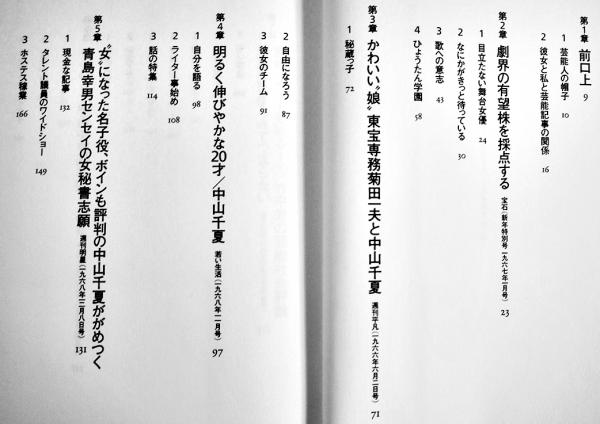 第1章 前口上 9
1 芸能人の帽子 10
2 彼女と私と芸能記事の関係 16
第2章 劇界の有望株を採点する 宝石(新年特別号一九六七年一月号) 23
1 目立たない舞台女優 24
2 なにかがきっと待っている 30
3 歌への意志 43
4 ひょうたん学園 58
第3章 かわいい“娘” 東宝専務菊田一夫と中山千夏 週刊平凡(一九六六年六月二日号) 71
1 秘蔵っ子 72
2 自由になろう 87
3 彼女のチーム 91
第4章 明るく伸びやかな20才/中山千夏 若い生活(一九六八年一一月号) 97
1 自分を語る 98
2 ライター事始め 108
3 話の特集 114
第5章 “女”になった名子役、ボインも評判の中山千夏ががめつく
青島幸男センセイの女秘書志願 週刊明星(一九六八年一二月八日号) 131
1 現金な記事 132
2 タレント議員のワイドショー 149
3 ホステス稼業 166